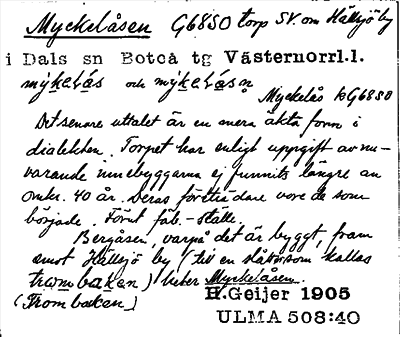 Myckelåsen G6850 torp SV. om Hällsjö by
i Dals sn Boteå tg Västernorrl.l.
mýkelás och mýkelásn
Myckelås bG6850
Det senare uttalet är en mera äkta form i
dialekten. Torpet har enligt uppgift av nu-
varande innebyggarna ej funnits längre än
omkr. 40 år. Deras företrädare vore de som
började. Förut fäb.-ställe.
Bergåsen, varpå det är byggt, fram
emot Hällsjö by (till en slåtter som kallas
trambakен) heter Myckelåsen.
(Trombacken)
H.Geijer 1905
ULMA 508:40